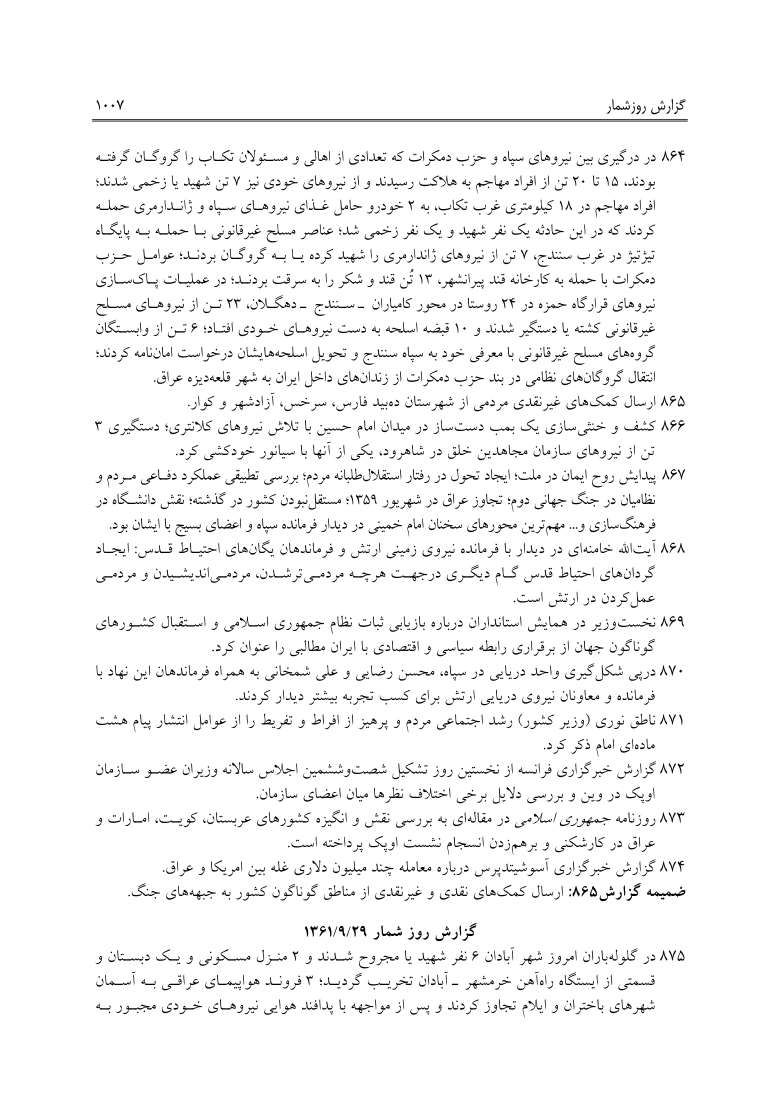 گزارش روزشمار ۱۰۰۷
۸۶۴ در درگیری بین نیروهای سپاه و حزب دمکرات که تعدادی از اهالی و مسئولان تکاب را گروگان گرفته
بودند، ۱۵ تا ۲۰ تن از افراد مهاجم به هلاکت رسیدند و از نیروهای خودی نیز ۷ تن شهید یا زخمی شدند؛
افراد مهاجم در ۱۸ کیلومتری غرب تکاب، به ۲ خودرو حامل غذای نیروهای سپاه و ژاندارمری حمله
کردند که در این حادثه یک نفر شهید و یک نفر زخمی شد؛ عناصر مسلح غیرقانونی با حمله به پایگاه
تیژتیژ در غرب سنندج، ۷ تن از نیروهای ژاندارمری را شهید کرده یا به گروگان بردند؛ عوامل حزب
دمکرات با حمله به کارخانه قند پیرانشهر، ۱۳ تُن قند و شکر را به سرقت بردند؛ در عملیات پاک‌سازی
نیروهای قرارگاه حمزه در ۲۴ روستا در محور کامیاران ـ سنندج ـ دهگلان، ۲۳ تن از نیروهای مسلح
غیرقانونی کشته یا دستگیر شدند و ۱۰ قبضه اسلحه به دست نیروهای خودی افتاد؛ ۶ تن از وابستگان
گروه‌های مسلح غیرقانونی با معرفی خود به سپاه سنندج و تحویل اسلحه‌هایشان درخواست امان‌نامه کردند؛
انتقال گروگان‌های نظامی در بند حزب دمکرات از زندان‌های داخل ایران به شهر قلعه‌دیزه عراق.
۸۶۵ ارسال کمک‌های غیرنقدی مردمی از شهرستان ده‌بید فارس، سرخس، آزادشهر و کوار.
۸۶۶ کشف و خنثی‌سازی یک بمب دست‌ساز در میدان امام حسین با تلاش نیروهای کلانتری؛ دستگیری ۳
تن از نیروهای سازمان مجاهدین خلق در شاهرود، یکی از آنها با سیانور خودکشی کرد.
۸۶۷ پیدایش روح ایمان در ملت؛ ایجاد تحول در رفتار استقلال‌طلبانه مردم؛ بررسی تطبیقی عملکرد دفاعی مردم و
نظامیان در جنگ جهانی دوم؛ تجاوز عراق در شهریور ۱۳۵۹؛ مستقل‌نبودن کشور در گذشته؛ نقش دانشگاه در
فرهنگ‌سازی و... مهم‌ترین محورهای سخنان امام خمینی در دیدار فرمانده سپاه و اعضای بسیج با ایشان بود.
۸۶۸ آیت‌الله خامنه‌ای در دیدار با فرمانده نیروی زمینی ارتش و فرماندهان یگان‌های احتیاط قدس: ایجاد
گردان‌های احتیاط قدس گام دیگری درجهت هرچه مردمی‌ترشدن، مردمی‌اندیشیدن و مردمی
عمل‌کردن در ارتش است.
۸۶۹ نخست‌وزیر در همایش استانداران درباره بازیابی ثبات نظام جمهوری اسلامی و استقبال کشورهای
گوناگون جهان از برقراری رابطه سیاسی و اقتصادی با ایران مطالبی را عنوان کرد.
۸۷۰ درپی شکل‌گیری واحد دریایی در سپاه، محسن رضایی و علی شمخانی به همراه فرماندهان این نهاد با
فرمانده و معاونان نیروی دریایی ارتش برای کسب تجربه بیشتر دیدار کردند.
۸۷۱ ناطق نوری (وزیر کشور) رشد اجتماعی مردم و پرهیز از افراط و تفریط را از عوامل انتشار پیام هشت
ماده‌ای امام ذکر کرد.
۸۷۲ گزارش خبرگزاری فرانسه از نخستین روز تشکیل شصت‌وششمین اجلاس سالانه وزیران عضو سازمان
اوپک در وین و بررسی دلایل برخی اختلاف نظرها میان اعضای سازمان.
۸۷۳ روزنامه جمهوری اسلامی در مقاله‌ای به بررسی نقش و انگیزه کشورهای عربستان، کویت، امارات و
عراق در کارشکنی و برهم‌زدن انسجام نشست اوپک پرداخته است.
۸۷۴ گزارش خبرگزاری آسوشیتدپرس درباره معامله چند میلیون دلاری غله بین امریکا و عراق.
ضمیمه گزارش۸۶۵: ارسال کمک‌های نقدی و غیرنقدی از مناطق گوناگون کشور به جبهه‌های جنگ.
گزارش روز شمار ۱۳۶۱/۹/۲۹
۸۷۵ در گلوله‌باران امروز شهر آبادان ۶ نفر شهید یا مجروح شدند و ۲ منزل مسکونی و یک دبستان و
قسمتی از ایستگاه راه‌آهن خرمشهر ـ آبادان تخریب گردید؛ ۳ فروند هواپیمای عراقی به آسمان
شهرهای باختران و ایلام تجاوز کردند و پس از مواجهه با پدافند هوایی نیروهای خودی مجبور به